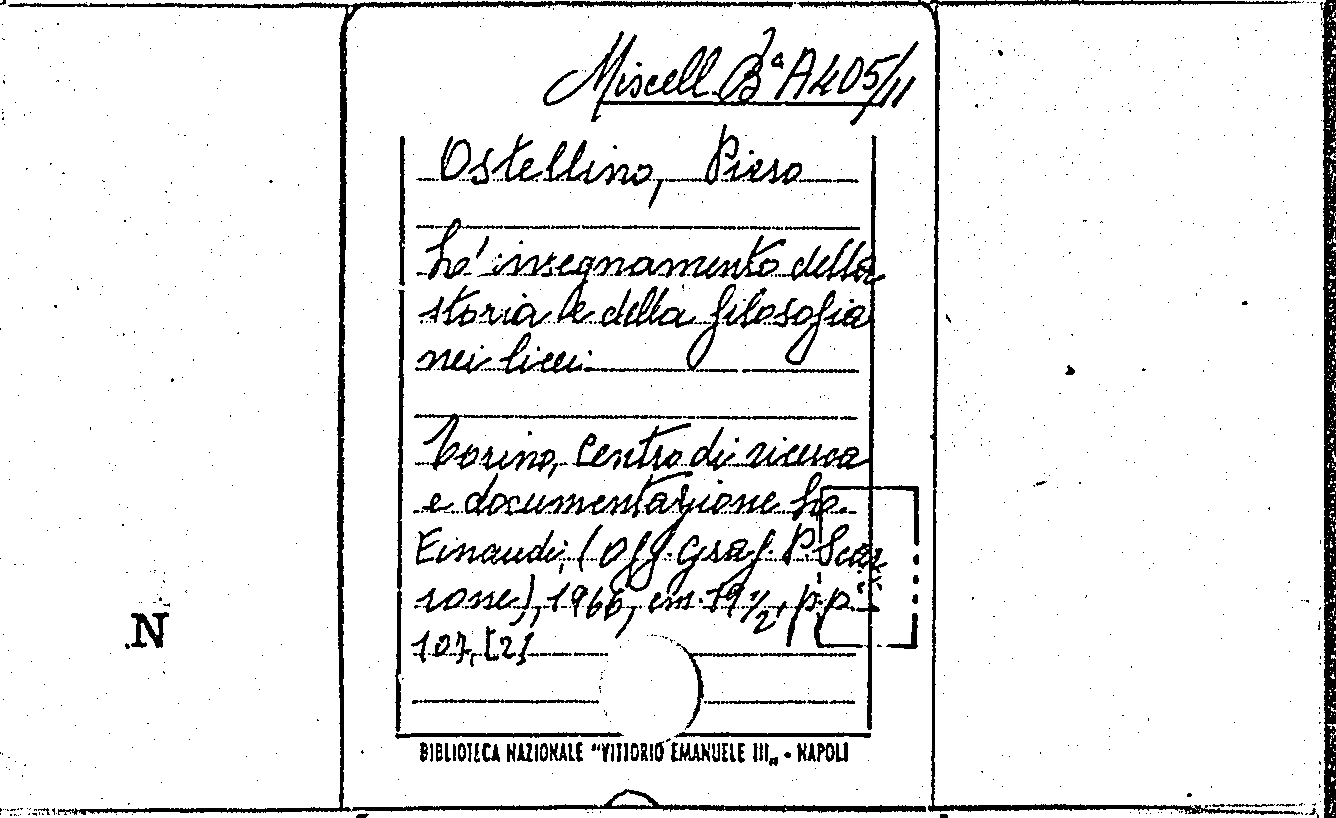 Miscell Bª A405/11
Ostellino, Piero
L'insegnamento della
storia e della filosofia
nei licei.
Torino, Centro di ricerca
e documentazione L.
Einaudi, (Off. Graf. P. Scar
rone), 1966, cm. 19½, pp.
107, [2]
N
BIBLIOTECA NAZIONALE "VITTORIO EMANUELE III„ - NAPOLI